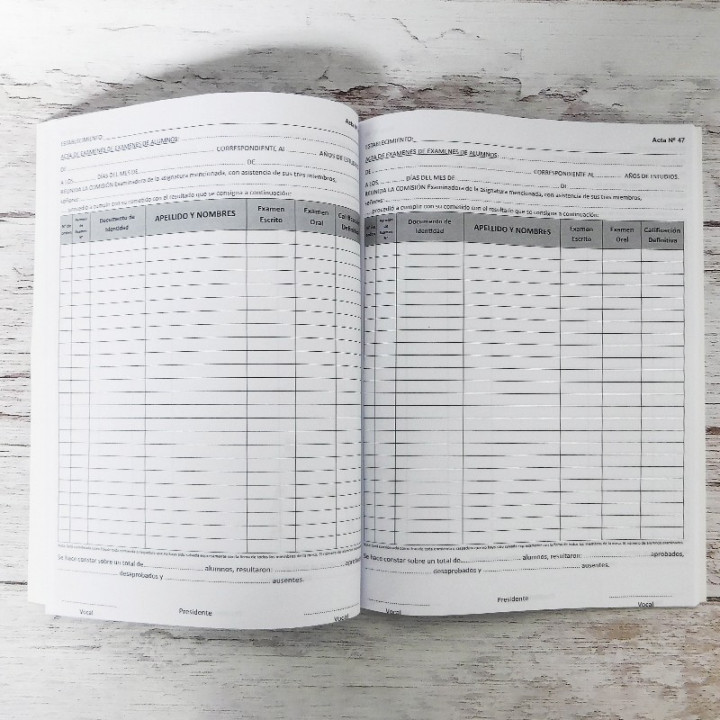 Acta N
ESTABLECIMIENTO:
ACTA DE EXAMENES DE EXAMENES DE ALUMNOS:
DE CORRESPONDIENTE AL AÑOS DE ESTUDIOS.
A LOS DÍAS DEL MES DE DE
REUNIDA LA COMISIÓN Examinadora de la asignatura mencionada, con asistencia de sus tres miembros,
señores:
procedió a cumplir con su cometido con el resultado que se consigna a continuación:
Documento de Identidad APELLIDO Y NOMBRES Examen Escrito Examen Oral Calificación Definitiva
Se hace constar sobre un total de alumnos, resultaron: aprobados,
desaprobados y ausentes.
Vocal Presidente Vocal
Acta Nº 47
ESTABLECIMIENTO:
ACTA DE EXAMENES DE EXAMENES DE ALUMNOS:
DE CORRESPONDIENTE AL AÑOS DE ESTUDIOS.
A LOS DÍAS DEL MES DE DE
REUNIDA LA COMISIÓN Examinadora de la asignatura mencionada, con asistencia de sus tres miembros,
señores:
procedió a cumplir con su cometido con el resultado que se consigna a continuación:
Documento de Identidad APELLIDO Y NOMBRES Examen Escrito Examen Oral Calificación Definitiva
Se hace constar sobre un total de alumnos, resultaron: aprobados,
desaprobados y ausentes.
Vocal Presidente Vocal